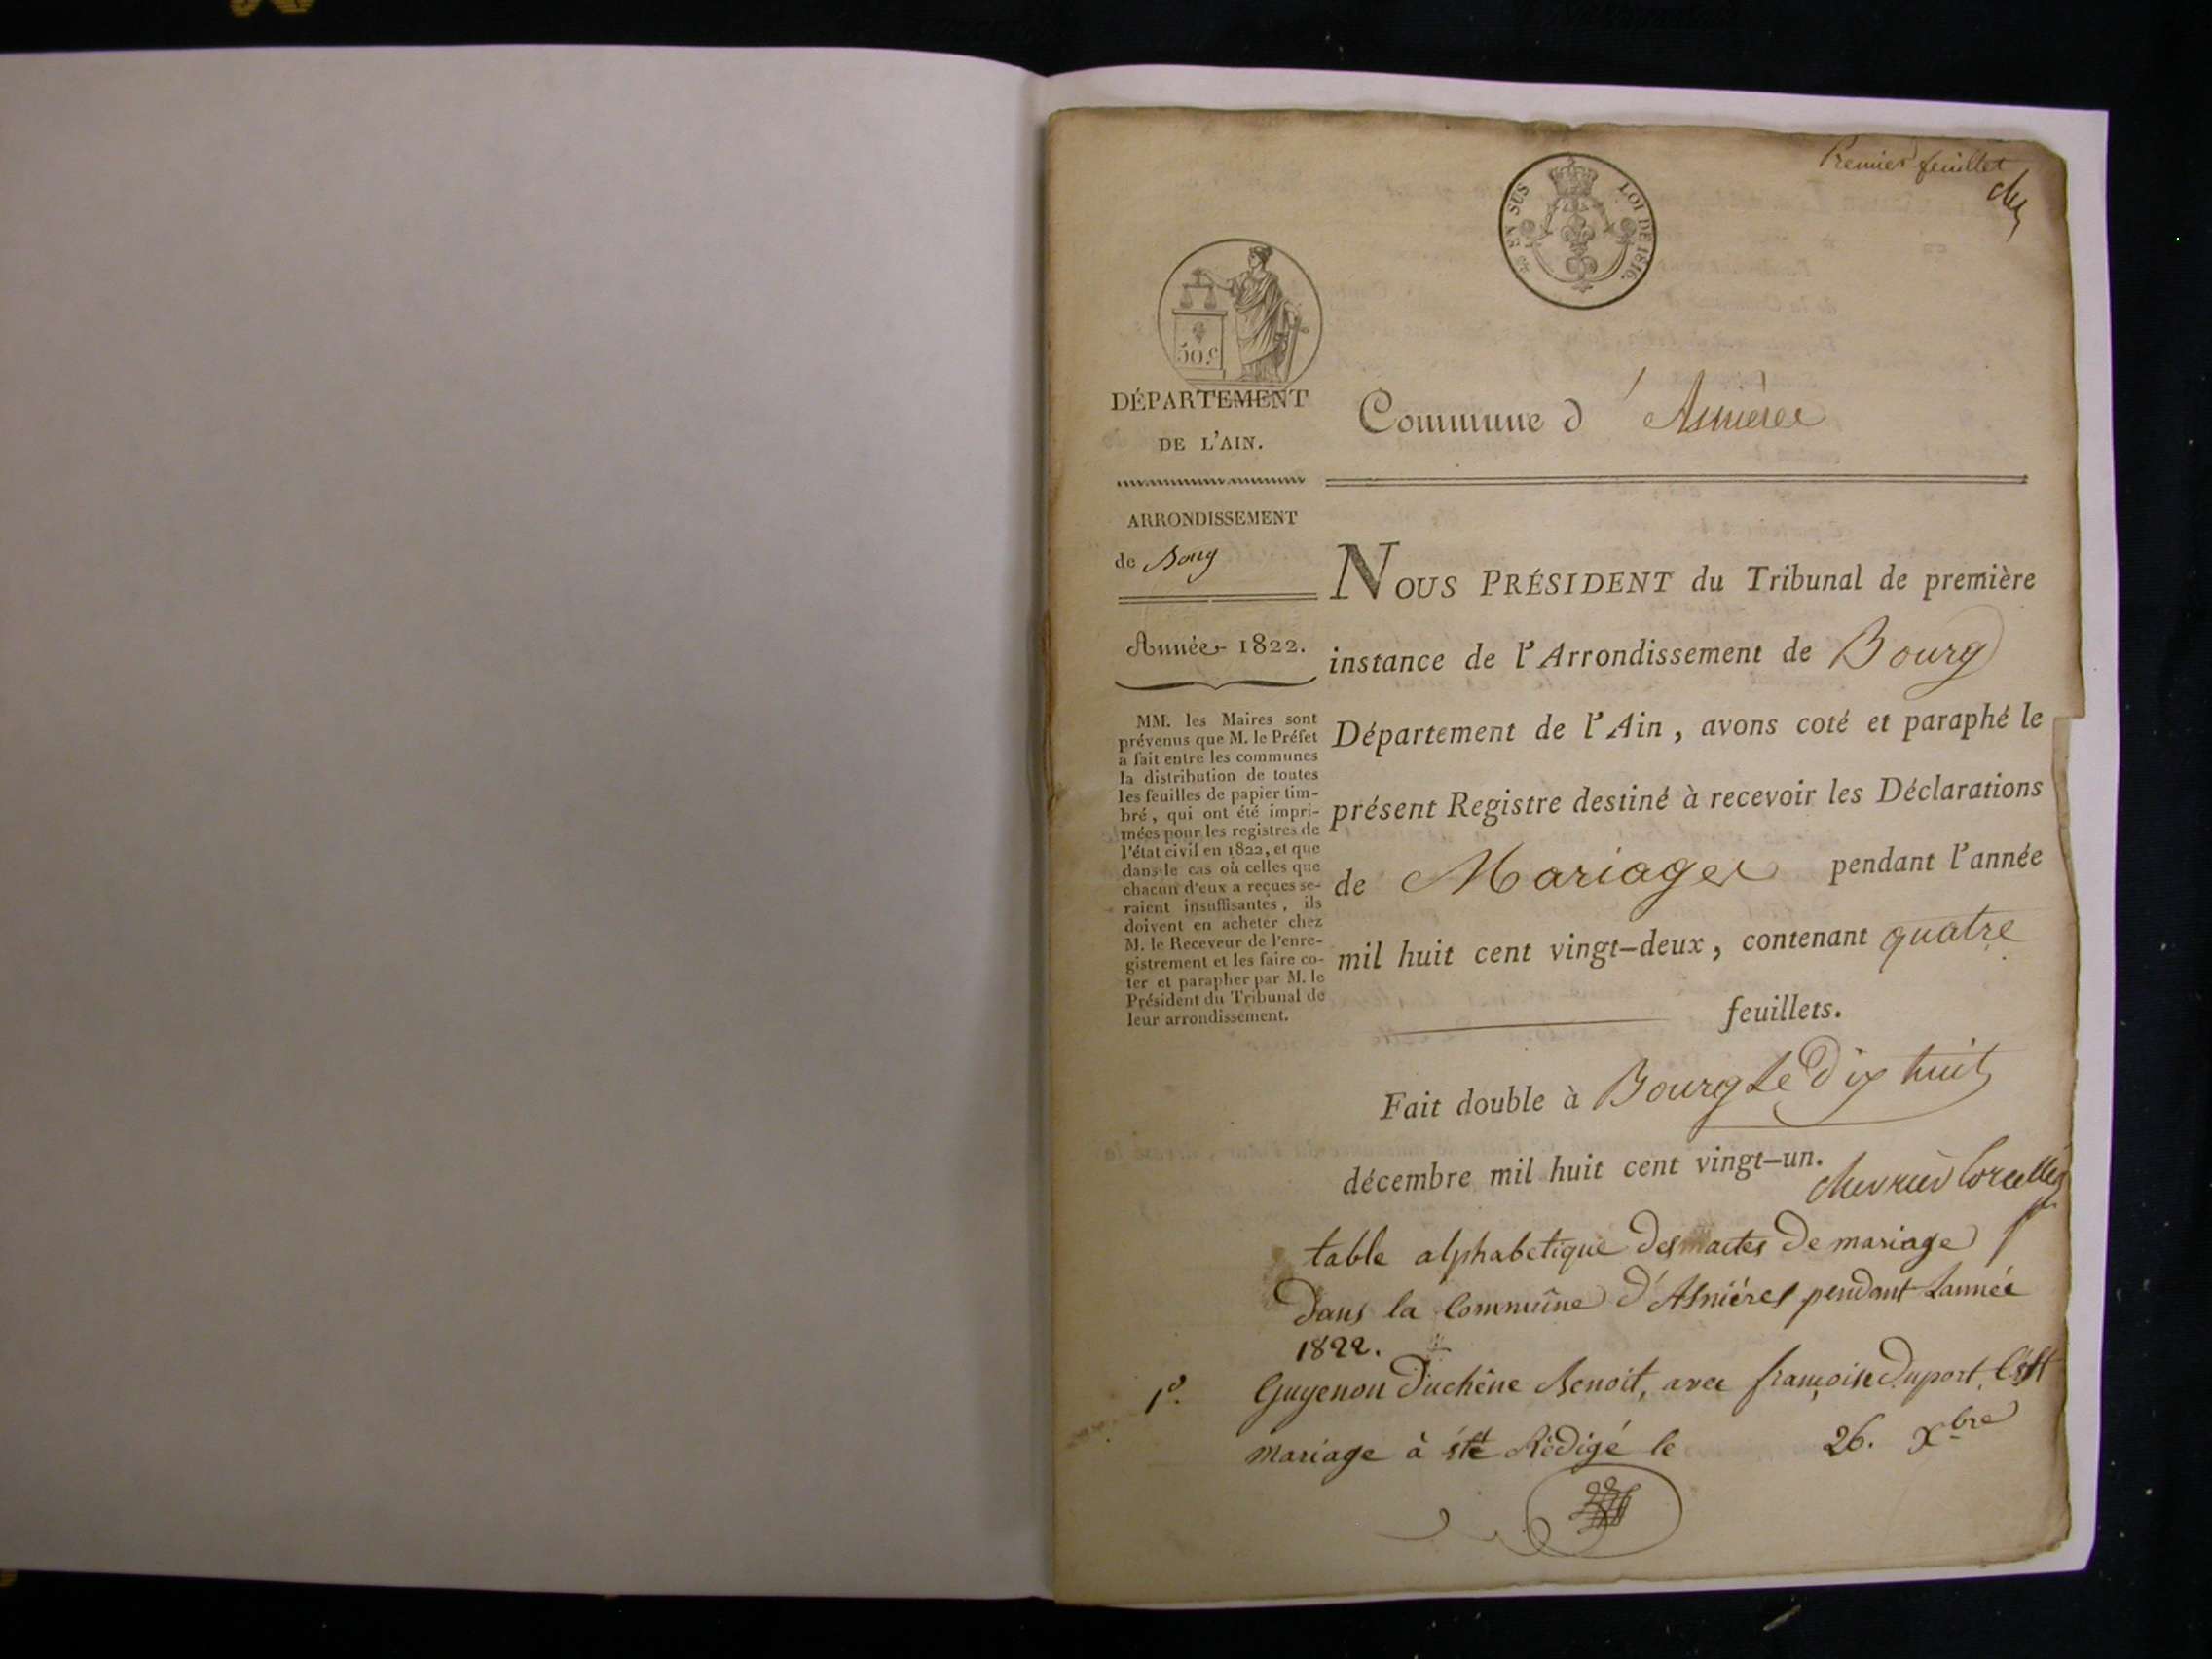 Premier feuillet
EN SUS LOI DE 1816.
50 c
DÉPARTEMENT
DE L'AIN.
Commune d'Asnières
ARRONDISSEMENT
de Bourg
Année 1822.
MM. les Maires sont
prévenus que M. le Préfet
a fait entre les communes
la distribution de toutes
les feuilles de papier tim-
bré, qui ont été impri-
mées pour les registres de
l'état civil en 1822, et que
dans le cas où celles que
chacun d'eux a reçues se-
raient insuffisantes, ils
doivent en acheter chez
M. le Receveur de l'enre-
gistrement et les faire co-
ter et parapher par M. le
Président du Tribunal de
leur arrondissement.
NOUS PRÉSIDENT du Tribunal de première
instance de l'Arrondissement de Bourg
Département de l'Ain, avons coté et paraphé le
présent Registre destiné à recevoir les Déclarations
de Mariages pendant l'année
mil huit cent vingt-deux, contenant quatre
feuillets.
Fait double à Bourg Le Dix huit
décembre mil huit cent vingt-un.
Chevrier Corcelles
table alphabetique des actes De mariage
Dans la Commune D'Asniéres pendant Lannée
1822.
1º. Guyenon Duchêne Benoit, avec françoise Duport,
mariage à été Rédigé le 26. Xbre